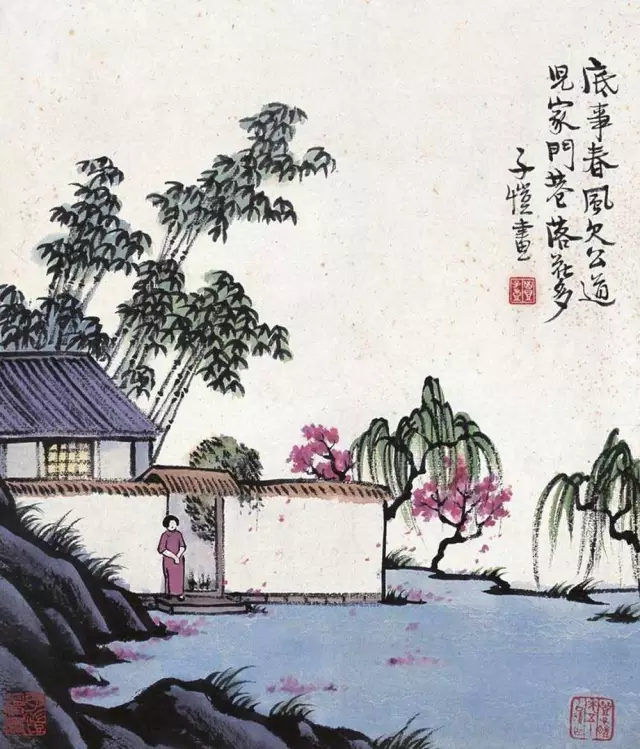 底事春風欠公道
兒家門巷落花多
子愷畫